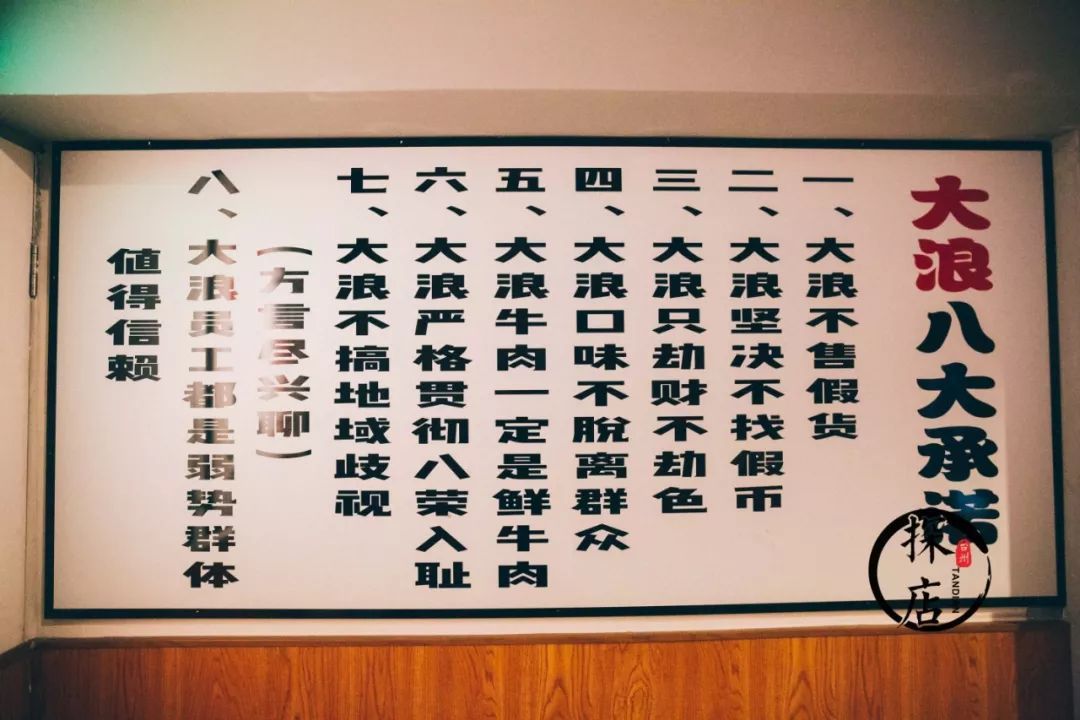 大浪八大承诺
一、大浪不售假货
二、大浪坚决不找假币
三、大浪只劫财不劫色
四、大浪口味不脱离群众
五、大浪牛肉一定是鲜牛肉
六、大浪严格贯彻八荣入耻
七、大浪不搞地域歧视
(方言尽兴聊)
八、大浪员工都是弱势群体
值得信赖
探店
台州
TANDIAN